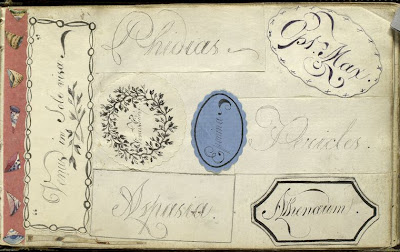 Phidias
Ops. Max.
"Venus in Sole visa"
Pericles.
Aspasia.
Athenaeum!